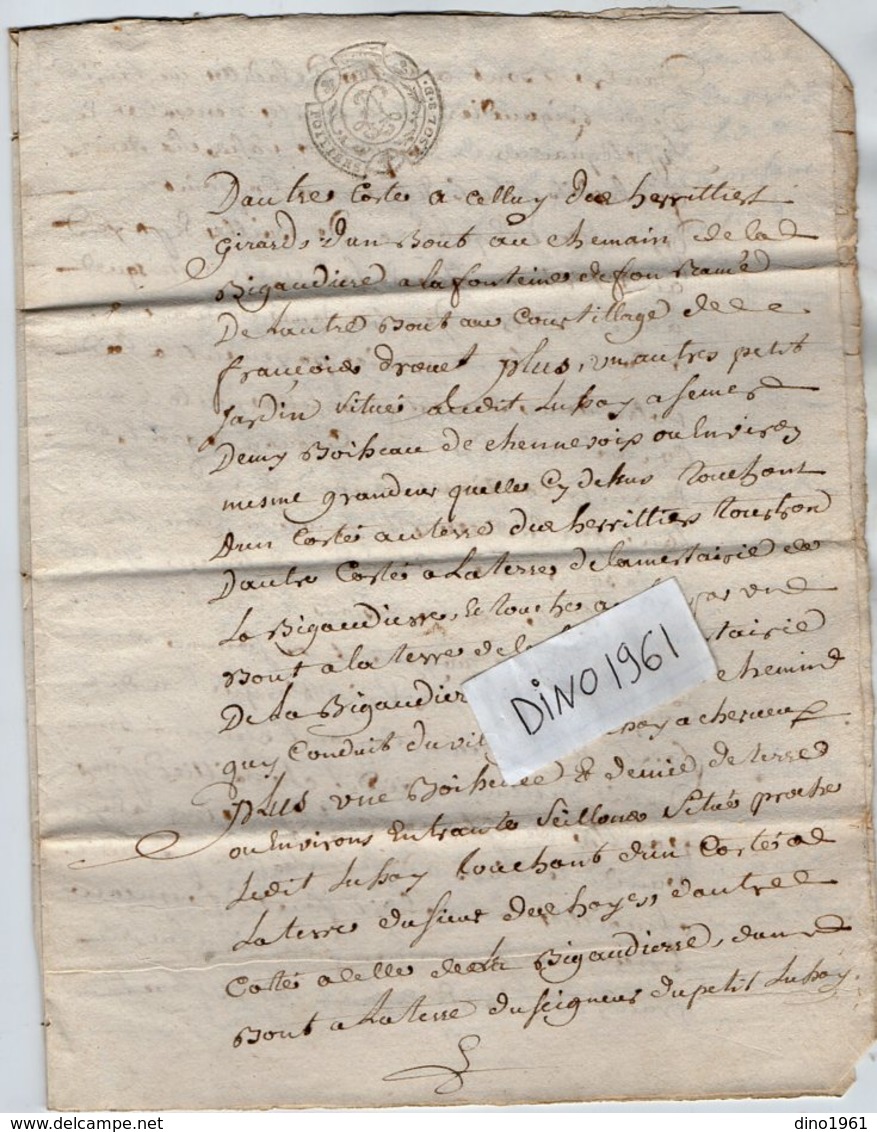 POITIERS
Dautre Costé a Celluy des herittiers
Girards d'un Bout au chemain de la
Bigaudiere a la fonteine de fon Ramé
De Lautre Bout au Courtillage de
françois drouet plus, un autres petit
Jardin Situé audit Lussay a semer
Demy Boisseau de chennevoix ou Environ
mesme grandeur quelle Cy dessus touchant
d'un Costé au terre des herittiers tourtron
Dautre Costé a La terre de la mestairie de
La Bigaudierre, Et touche
Bout a la terre de la tairie
De La Bigaudier chemin
quy Conduit du vil say a cherveux
plus une Boissellée & demie de terre
ou Environs En trante Seillons Situé proche
Ledit Lussay touchant d'un Costé a
La terre du sieur des hayes dautre
Costé a celle de la Bigaudierre, d'un
Bout a La terre du seigneur du petit Lussay
DINO 1961
dino1961